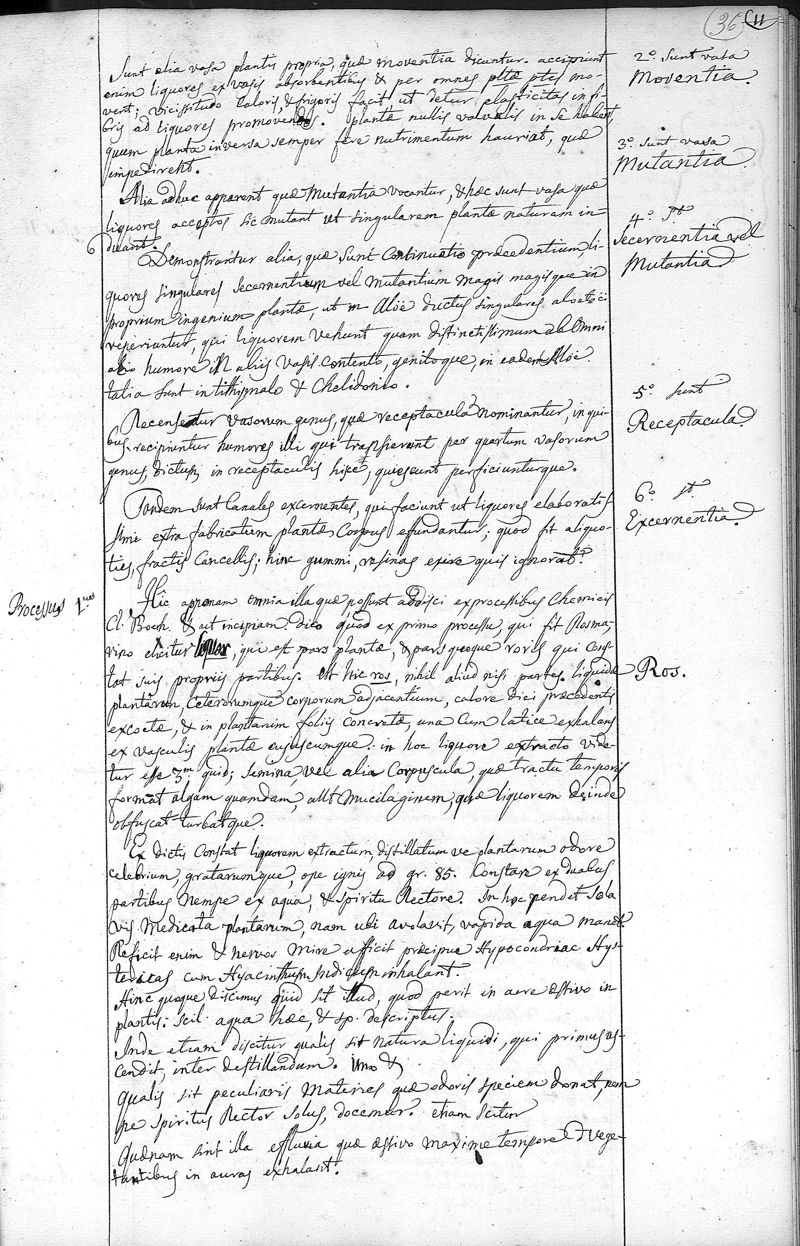 36 11
Sunt alia vasa plantis propria, quæ moventia dicuntur. accipiunt
enim liquores ex vasis absorbentibus & per omnes pltæ ptes mo-
vent; vicissitudo caloris, & frigoris facit, ut detur elasticitas in fi-
bris ad liquores promovendos. plantæ nullis valvulis in se habent,
quum planta inversa semper fere nutrimentum hauriat, quæ
impedirent.
2º Sunt vasa
Moventia.
Alia adhuc apparent quæ Mutantia vocantur, & hæc sunt vasa quæ
liquores acceptos sic mutant ut singularem plantæ naturam in-
duant.
3º Sunt vasa
Mutantia.
Demonstrantur alia, quæ sunt Continuatio præcedentium, li-
quores singulares secernentium vel Mutantium magis magisque in
proprium ingenium plantæ, ut in Aloë ductus singulares aloetici
reperiuntur, qui liquorem vehunt quam distinctissimum ab omni
alio humore in aliis vasis contento, genitoque, in eadem Aloë.
talia sunt in tithymalo & Chelidonio.
4º st
Secernentia vel
Mutantia
Recensetur vasorum genus, quæ receptacula nominantur, in qui-
bus recipiuntur humores illi qui transierunt per quartum vasorum
genus, dictum, in receptaculis hisce, quiescunt perficiunturque.
5º sunt
Receptacula
Tandem sunt Canales excernentes, qui faciunt ut liquores elaboratis-
simi extra fabricatum plantæ Corpus effundantur; quod fit aliquo-
ties, fractis Cancellis; hinc gummi, resinas exire quis ignorat?
6º st
Excernentia.
Processus 1mus
Hic apponam omnia illa quæ possunt addisci ex processibus Chemicis
Cl. Boerh. & ut incipiam dico quod ex primo processu, qui fit Rosma-
rino elicitur liquor, qui est pars plantæ, & pars quoque roris qui Cons-
tat suis propriis partibus. est hic ros, nihil aliud nisi partes liquidæ
plantarum, Ceterorumque corporum adjacentium, calore diei præcedentis
excoctæ, & in plantarum foliis concretæ, una cum latice exhalans
ex vasculis plantæ cujuscumque: in hoc liquore extracto vide-
tur esse 3m quid; semina, vel alia Corpuscula, quæ tractu temporis
formant algam quamdam, aut Mucilaginem, quæ liquorem deinde
obfuscat turbatque.
Ros.
Ex dictis Constat liquorem extractum, distillatum ve plantarum odore
celebrium, gratarumque, ope ignis ad gr. 85. Constare ex duabus
partibus nempe ex aqua, & spiritu Rectore. In hoc pendet sola
vis Medicata plantarum, nam ubi avolavit, vapida aqua manet.
Reficit enim & nervos mire afficit præcipue Hypocondriac. Hys-
tericas cum Hyacinthum Indicum inhalant.
Hinc quoque discimus quid sit illud, quod perit in aere æstivo in
plantis: scil. aqua hæc, & sp. descriptus.
Inde etiam discitur qualis sit natura liquidi, qui primus as-
cendit, inter destillandum. imo &
Qualis sit peculiaris Materies quæ odoris speciem donat, nem-
pe spiritus Rector solus, docemur. etiam scitur
Quænam sint illa effluvia quæ æstivo maxime tempore e vege-
tantibus in auras exhalant.